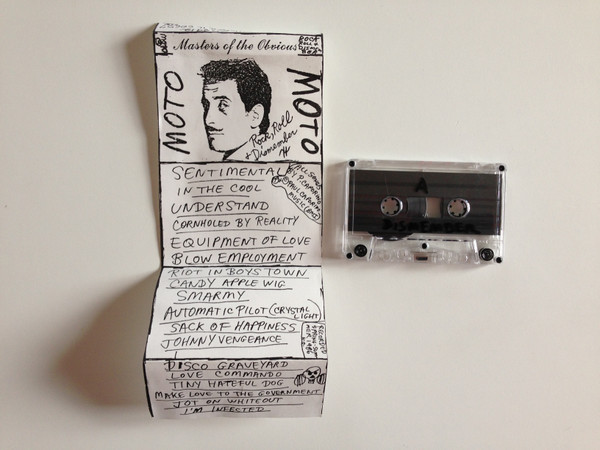 Masters of the Obvious
MOTO
MOTO
Rock, Roll
+ Dismember
SENTIMENTAL
IN THE COOL
UNDERSTAND
CORNHOLED BY REALITY
EQUIPMENT OF LOVE
BLOW EMPLOYMENT
ALL SONGS
BY P. CAPORINO
MUSIC (BMI)
RIOT IN BOYS TOWN
CANDY APPLE WIG
SMARMY
AUTOMATIC PILOT (CRYSTAL
LIGHT)
SACK OF HAPPINESS
JOHNNY VENGEANCE
DISCO GRAVEYARD
LOVE COMMANDO
TINY HATEFUL DOG
MAKE LOVE TO THE GOVERNMENT
JOT ON WHITEOUT
I'M INFECTED
A
DISMEMBER